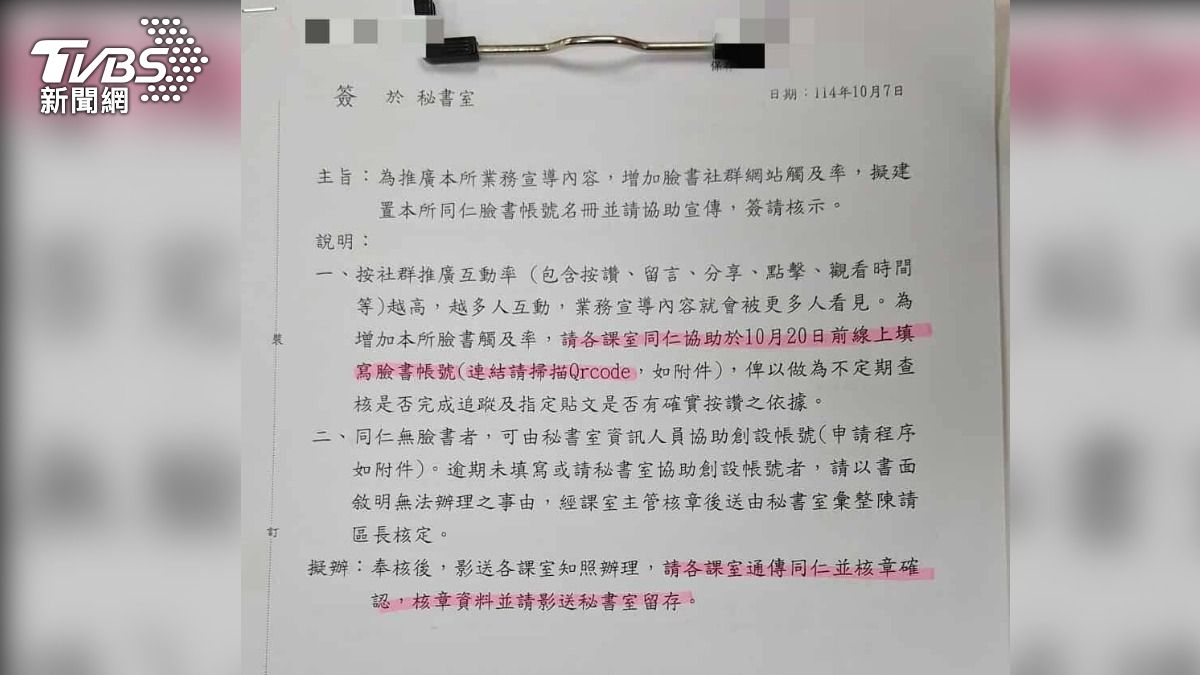 TVBS
新聞網
保存
簽 於 秘書室
日期：114年10月7日
主旨：為推廣本所業務宣導內容，增加臉書社群網站觸及率，擬建
置本所同仁臉書帳號名冊並請協助宣傳，簽請核示。
說明：
一、按社群推廣互動率 (包含按讚、留言、分享、點擊、觀看時間
等)越高，越多人互動，業務宣導內容就會被更多人看見。為
增加本所臉書觸及率，請各課室同仁協助於10月20日前線上填
寫臉書帳號(連結請掃描Qrcode，如附件)，俾以做為不定期查
核是否完成追蹤及指定貼文是否有確實按讚之依據。
二、同仁無臉書者，可由秘書室資訊人員協助創設帳號(申請程序
如附件)。逾期未填寫或請秘書室協助創設帳號者，請以書面
敘明無法辦理之事由，經課室主管核章後送由秘書室彙整陳請
區長核定。
擬辦：奉核後，影送各課室知照辦理，請各課室通傳同仁並核章確
認，核章資料並請影送秘書室留存。
裝
訂